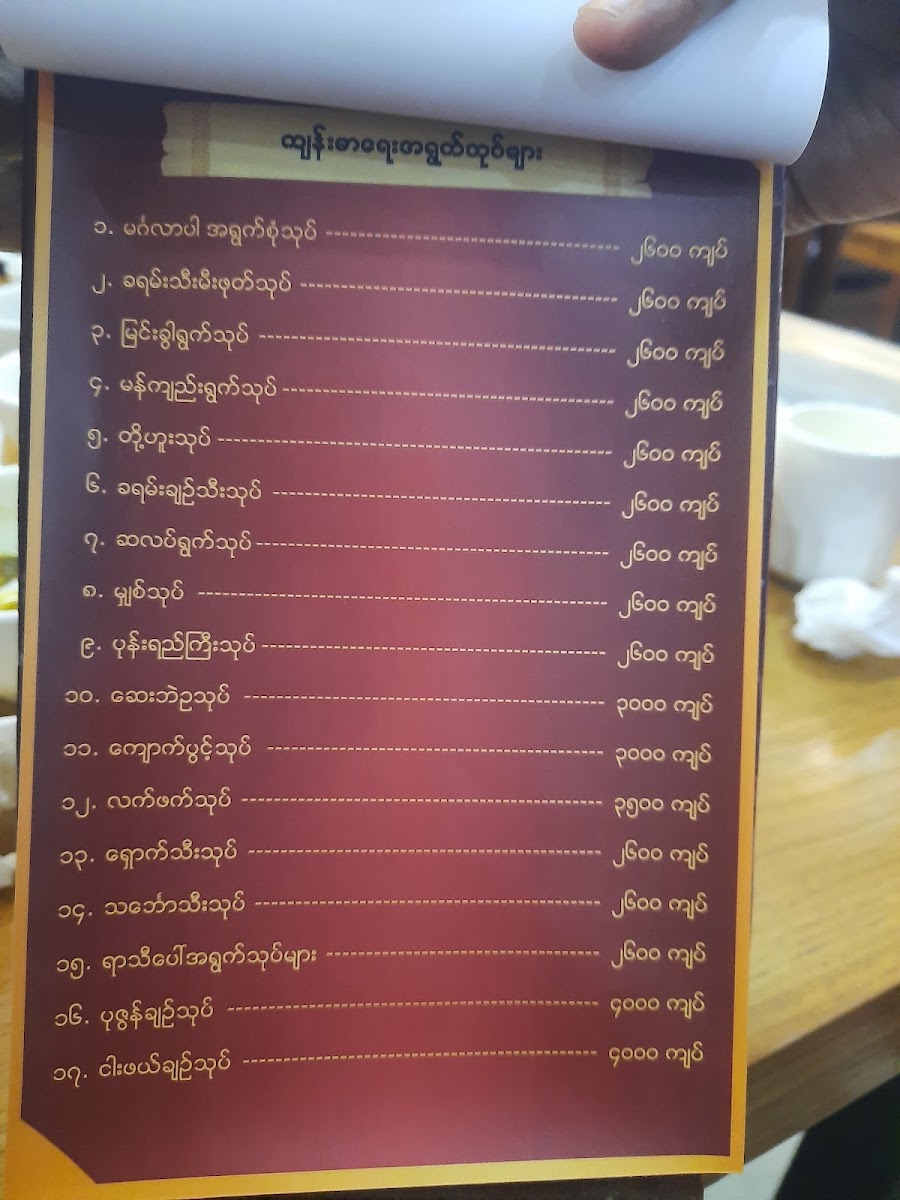 ကျန်းမာရေးအရွက်သုပ်များ
၁. မင်္ဂလာပါ အရွက်စုံသုပ် ၂၆၀၀ ကျပ်
၂. ခရမ်းသီးမီးဖုတ်သုပ် ၂၆၀၀ ကျပ်
၃. မြင်းခွါရွက်သုပ် ၂၆၀၀ ကျပ်
၄. မန်ကျည်းရွက်သုပ် ၂၆၀၀ ကျပ်
၅. တို့ဟူးသုပ် ၂၆၀၀ ကျပ်
၆. ခရမ်းချဉ်သီးသုပ် ၂၆၀၀ ကျပ်
၇. ဆလပ်ရွက်သုပ် ၂၆၀၀ ကျပ်
၈. မျှစ်သုပ် ၂၆၀၀ ကျပ်
၉. ပုန်းရည်ကြီးသုပ် ၂၆၀၀ ကျပ်
၁၀. ဆေးဘဲဥသုပ် ၃၀၀၀ ကျပ်
၁၁. ကျောက်ပွင့်သုပ် ၃၀၀၀ ကျပ်
၁၂. လက်ဖက်သုပ် ၃၅၀၀ ကျပ်
၁၃. ရှောက်သီးသုပ် ၂၆၀၀ ကျပ်
၁၄. သင်္ဘောသီးသုပ် ၂၆၀၀ ကျပ်
၁၅. ရာသီပေါ်အရွက်သုပ်များ ၂၆၀၀ ကျပ်
၁၆. ပုဇွန်ချဉ်သုပ် ၄၀၀၀ ကျပ်
၁၇. ငါးဖယ်ချဉ်သုပ် ၄၀၀၀ ကျပ်